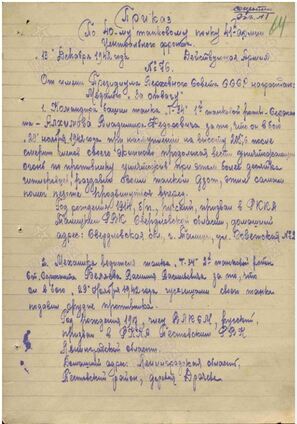 Секретно
Экз. №1
64
Приказ
По 40-му танковому полку 41й Армии
Центрального фронта.
13 Декабря 1942 года Действующая Армия
№ 76.
От имени Президиума Верховного Совета СССР награждаю:
Медалью "За отвагу"
1. Командира башни танка "Т-34" 1й танковой роты - Сержан
та - Владимира Федоровича за то, что он в бою
29 ноября 1942 года при наступлении на высоту
смерти своего продолжал вести уничтожающий
огонь по противнику уничтожив при этом более десятка
гитлеровцев, раздавив своим танком дзот, этим самым
помог пехоте продвинуться вперед.
Год рождения 1914, русский, призван в РККА
РВК Свердловской области, домашний
адрес: Свердловская обл, г. ул. Советская №2
2. Механика водителя танка "Т-34" 2й танковой роты
Ст. Сержанта Беляева Василия Васильевича за то, что
он в бою 29 Ноября 1942 года, гусеницами своего танка
подавил орудие противника.
Год рождения член ВЛКСМ, русский,
призван в РККА Пестовским РВК
Ленинградской области.
Домашний адрес: Ленинградская область,
Пестовский район, деревня